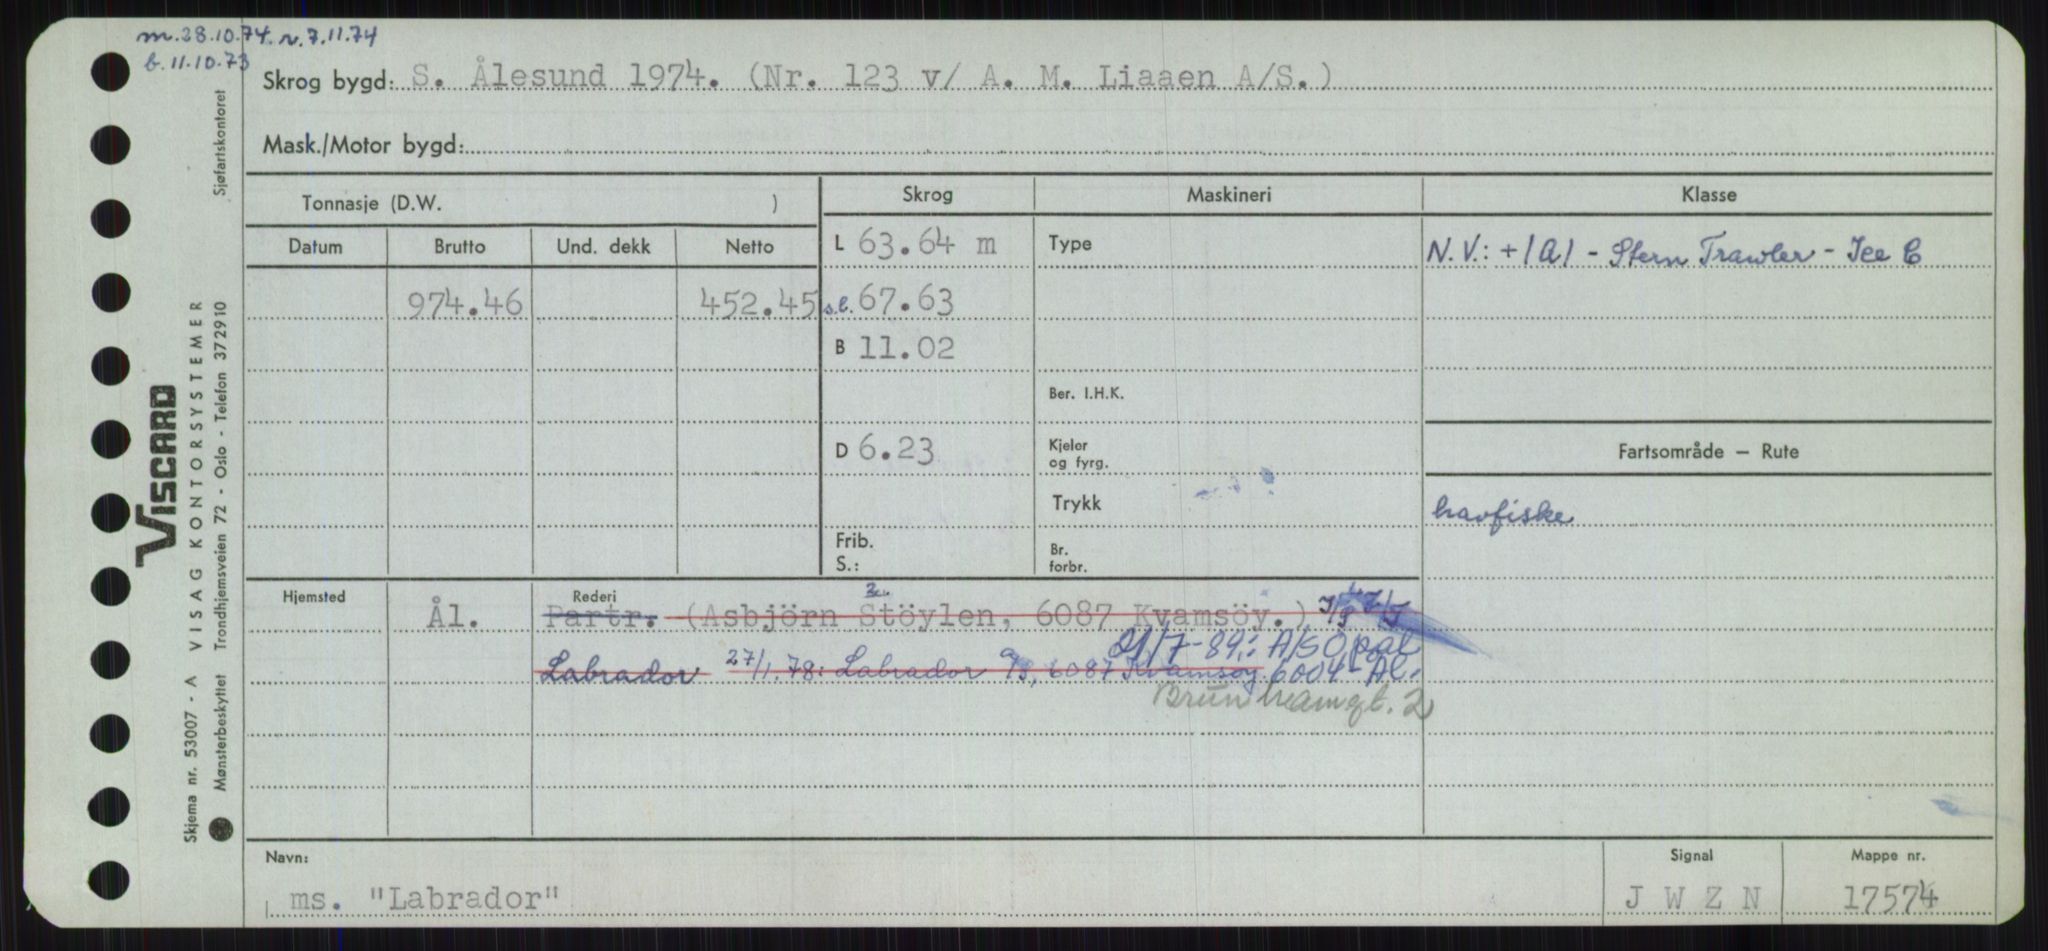 m. 28.10.74. r. 7.11.74
b. 11.10.73
Skrog bygd: S. Ålesund 1974. (Nr. 123 v/ A. M. Liaaen A/S.)
Mask./Motor bygd:
Tonnasje (D.W. )
Skrog
Maskineri
Klasse
Datum
Brutto
Und. dekk
Netto
L 63.64 m
Type
N.V.: +1A1 - Stern Trawler - Ice C
974.46
452.45
s.l. 67.63
B 11.02
Ber. I.H.K.
D 6.23
Kjeler
og fyrg.
Fartsområde – Rute
Trykk
havfiske
Frib.
S.:
Br.
forbr.
Hjemsted
Rederi
Ål.
Partr. (Asbjörn Stöylen, 6087 Kvamsöy.)
21/7-89.: A/S Opal
Labrador 27/1.78: Labrador A/S, 6087 Kvamsøy. 6004 Ål.
Brunhamgt. 2
Navn:
ms. "Labrador"
Signal
J W Z N
Mappe nr.
17574
Sjøfartskontoret
VISCARD
VISAG KONTORSYSTEMER
Trondhjemsveien 72 - Oslo - Telefon 372910
Skjema nr. 53007 - A
Mønsterbeskyttet